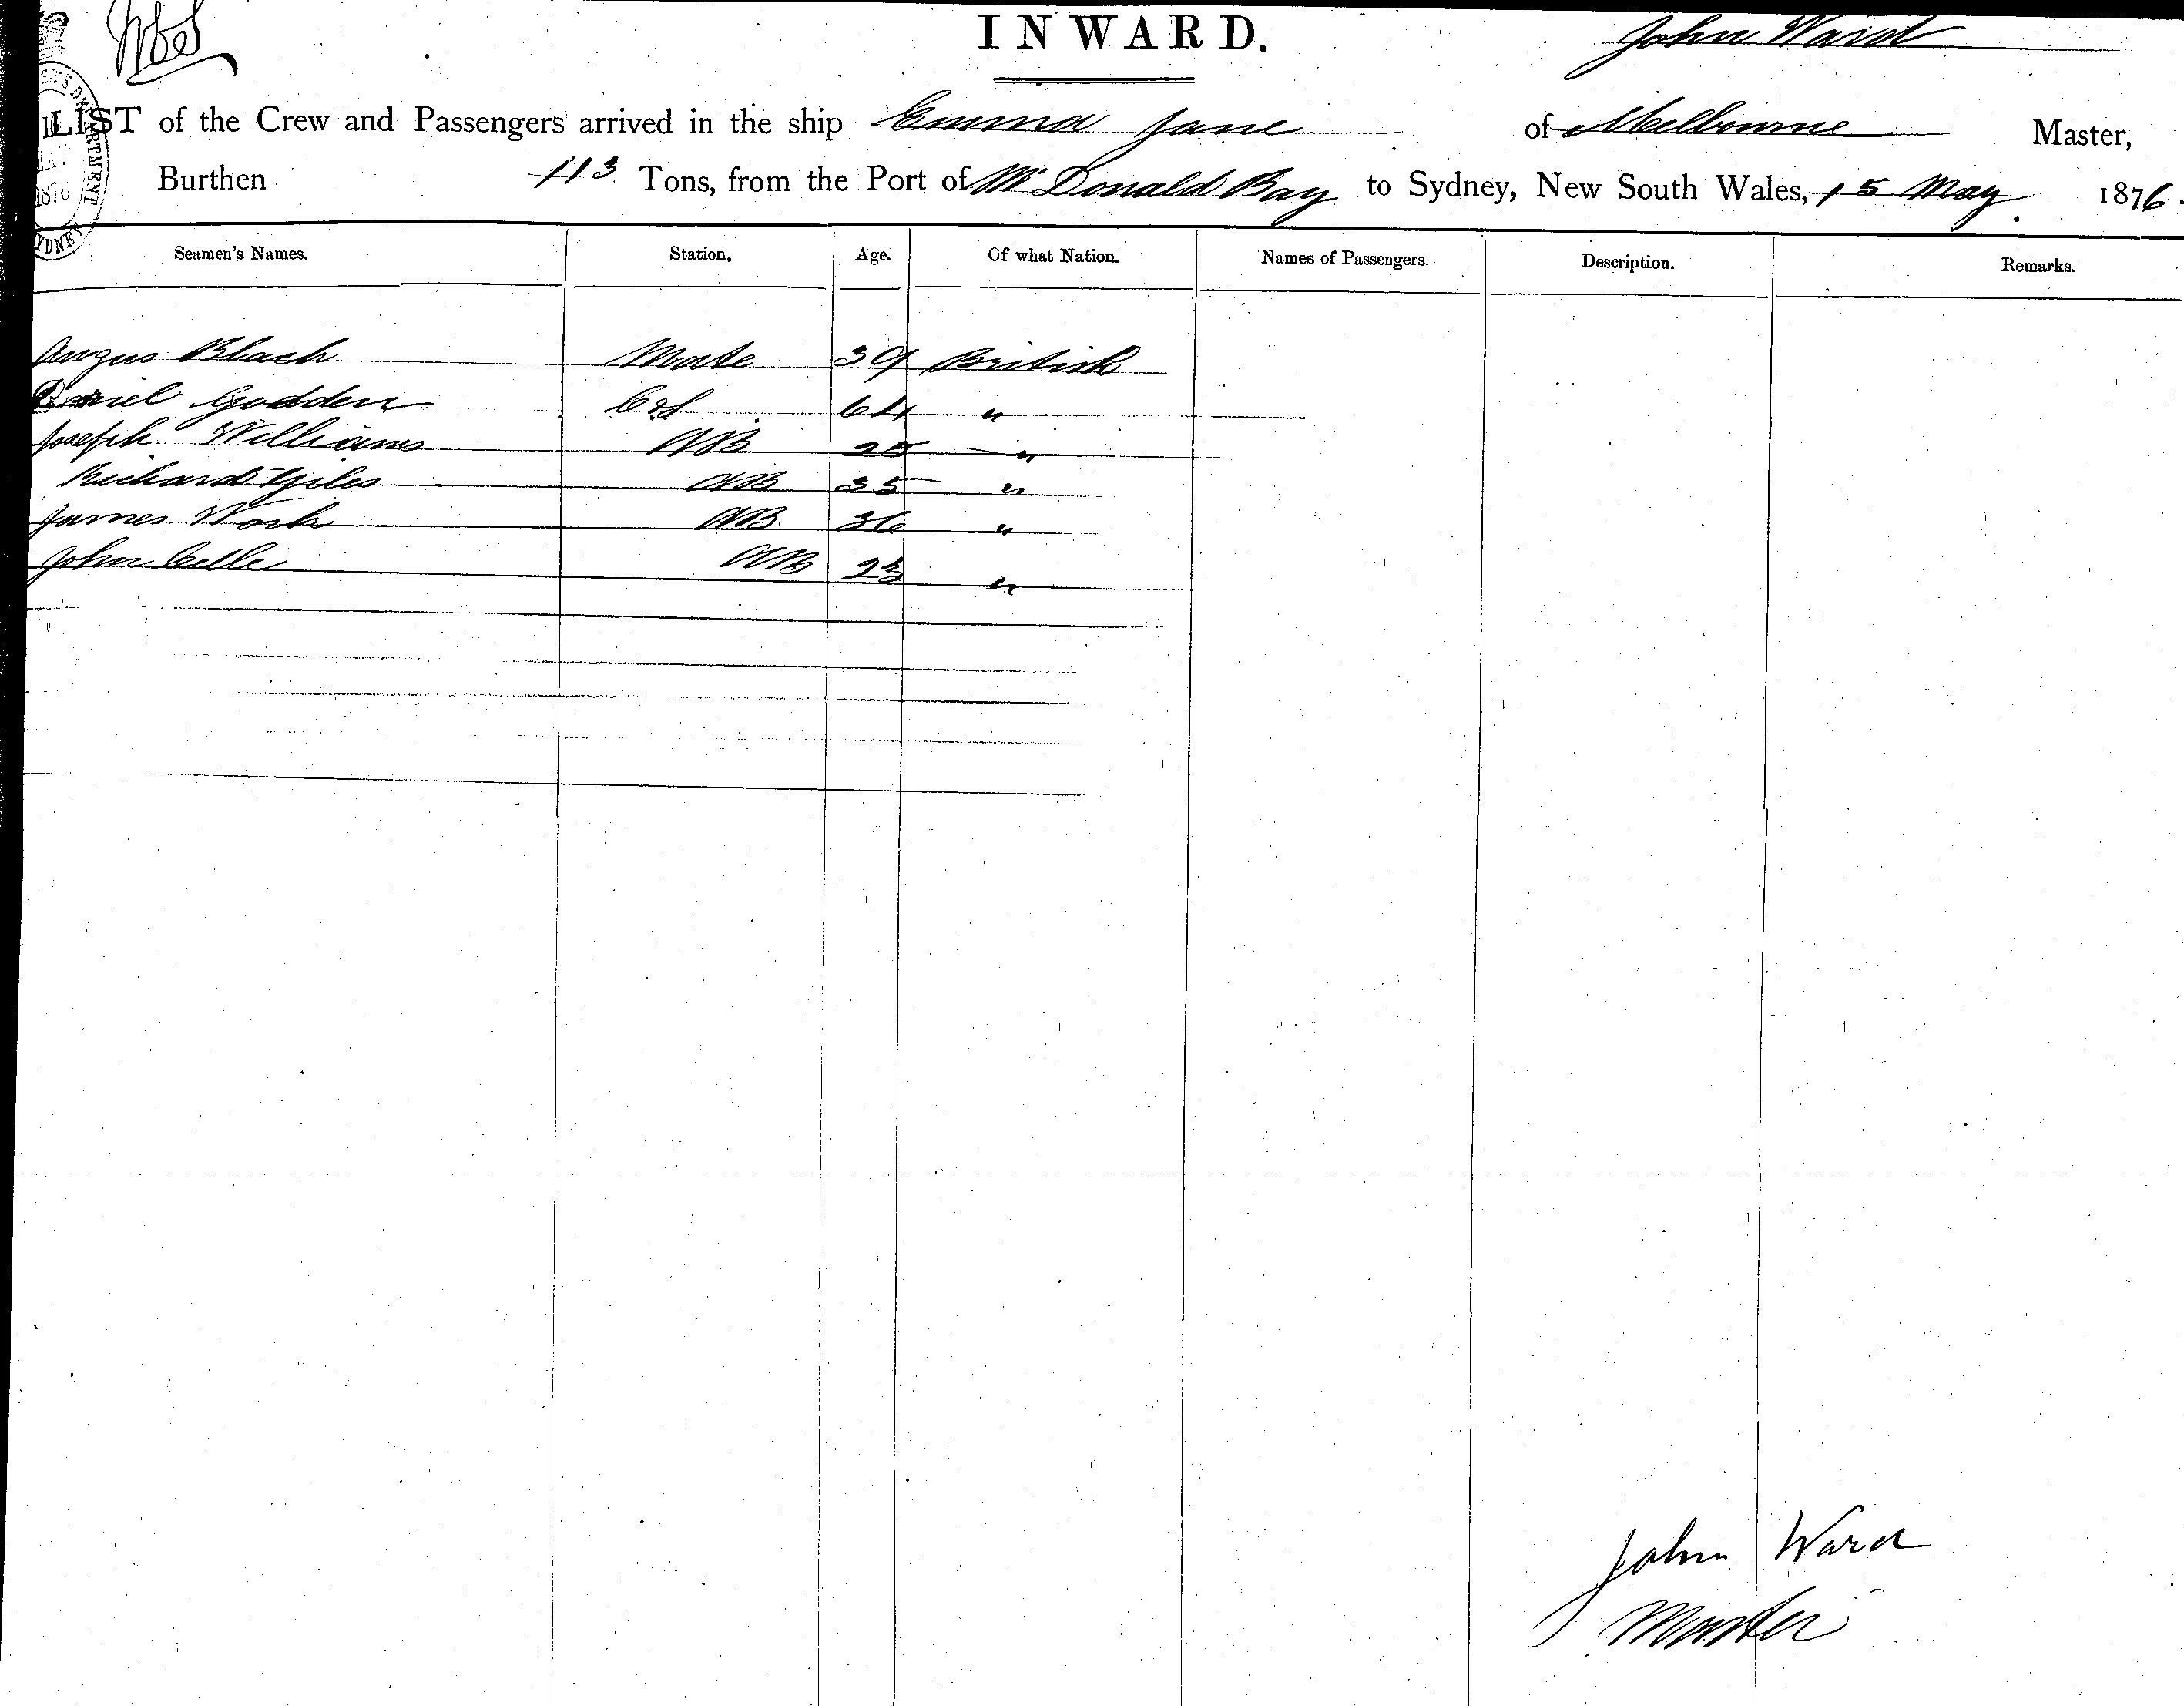 INWARD.
John Ward
LIST of the Crew and Passengers arrived in the ship Emma Jane of Melbourne Master,
Burthen 113 Tons, from the Port of Mc Donald Bay to Sydney, New South Wales, 15 May 1876.
Seamen's Names. Station, Age. Of what Nation. Names of Passengers. Description. Remarks.
Angus Black Mate 39 British
Daniel Godden 64 "
Joseph Williams AB 25 "
Richard Giles AB 35 "
James AB 36 "
John AB 23 "
John Ward
Master